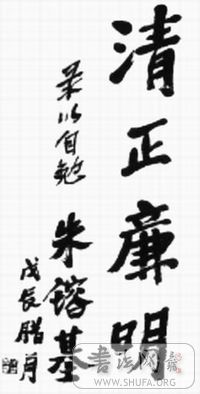 清正廉明
以自勉
朱鎔基
戊辰腊月
书法网
WWW.SHUFA.ORG